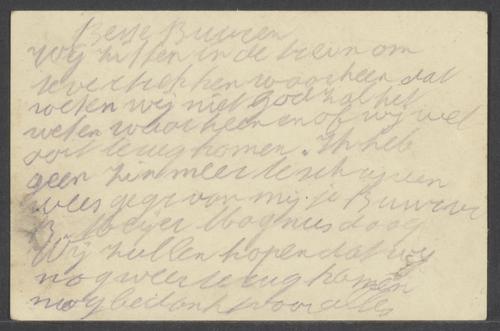 Beste Buuren
Wij zitten in de trein om
te vertrekken waarheen dat
weten wij niet God zal het
weten waarheen en of wij wel
ooit terug komen. Ik heb
geen zin meer te schrijven
wees gegr van mij. je Buuvr
B. Meijer Magnus daag
Wij zullen hopen dat wij
nog weer terug komen
nog bedankt voor alles